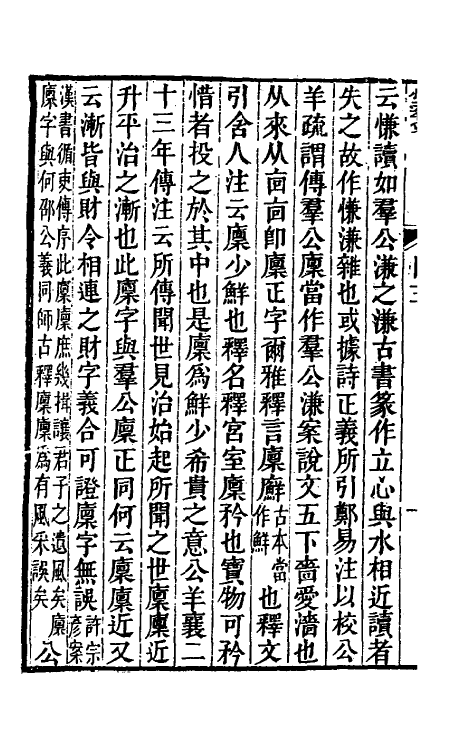 云慊讀如羣公溓之溓古書篆作立心與水相近讀者
失之故作慊溓雜也或據詩正義所引鄭易注以校公
羊疏謂傳羣公廩當作羣公溓案說文五下嗇愛濇也
从來从㐭㐭卽廩正字爾雅釋言廩廯古本當作鮮也釋文
引舍人注云廩少鮮也釋名釋宮室廩矜也寶物可矜
惜者投之於其中也是廩爲鮮少希貴之意公羊襄二
十三年傳注云所傳聞世見治始起所聞之世廩廩近
升平治之漸也此廩字與羣公廩正同何云廩廩近又
云漸皆與財令相連之財字義合可證廩字無誤許宗彥案
漢書循吏傳序此廩廩庶幾揖讓君子之遺風矣廩
廩字與何邵公義同師古釋廩廩爲有風采誤矣
公